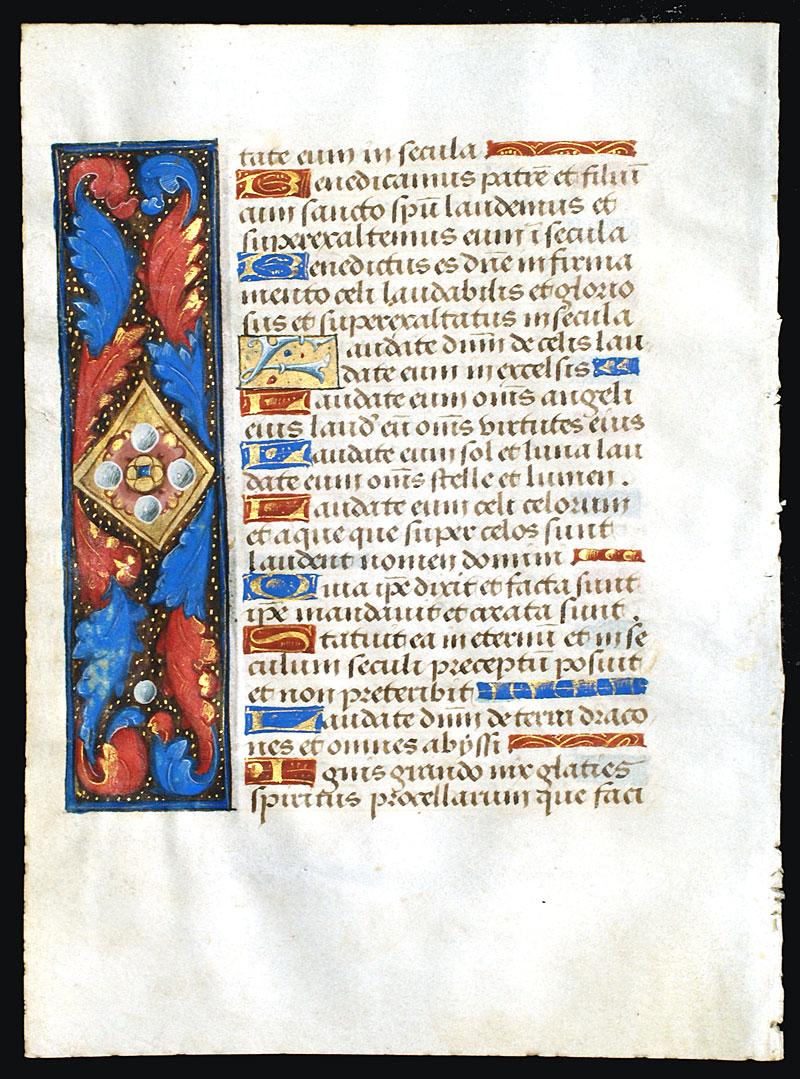 tate eum in secula
Benedicamus patrē et filiū
cum sancto spū laudemus et
superexaltemus eum ī secula
Benedictus es dn̄e in firma
mento celi laudabilis et glorio
sus et superexaltatus in secula
Laudate dn̄m de celis lau
date eum in excelsis
Laudate eum om̄s angeli
eius laud' eū om̄s virtutes eius
Laudate eum sol et luna lau
date eum om̄s stelle et lumen.
Laudate eum celi celorum
et aque que super celos sunt
laudent nomen domini
Quia ip̄e dixit et facta sunt
ip̄e mandavit et creata sunt.
Statuit ea in eternū et in sē
culum seculi preceptū posuit
et non preteribit
Laudate dn̄m de terra draco
nes et omnes abyssi
Ignis grando nix glaties
spiritus procellarum que faci